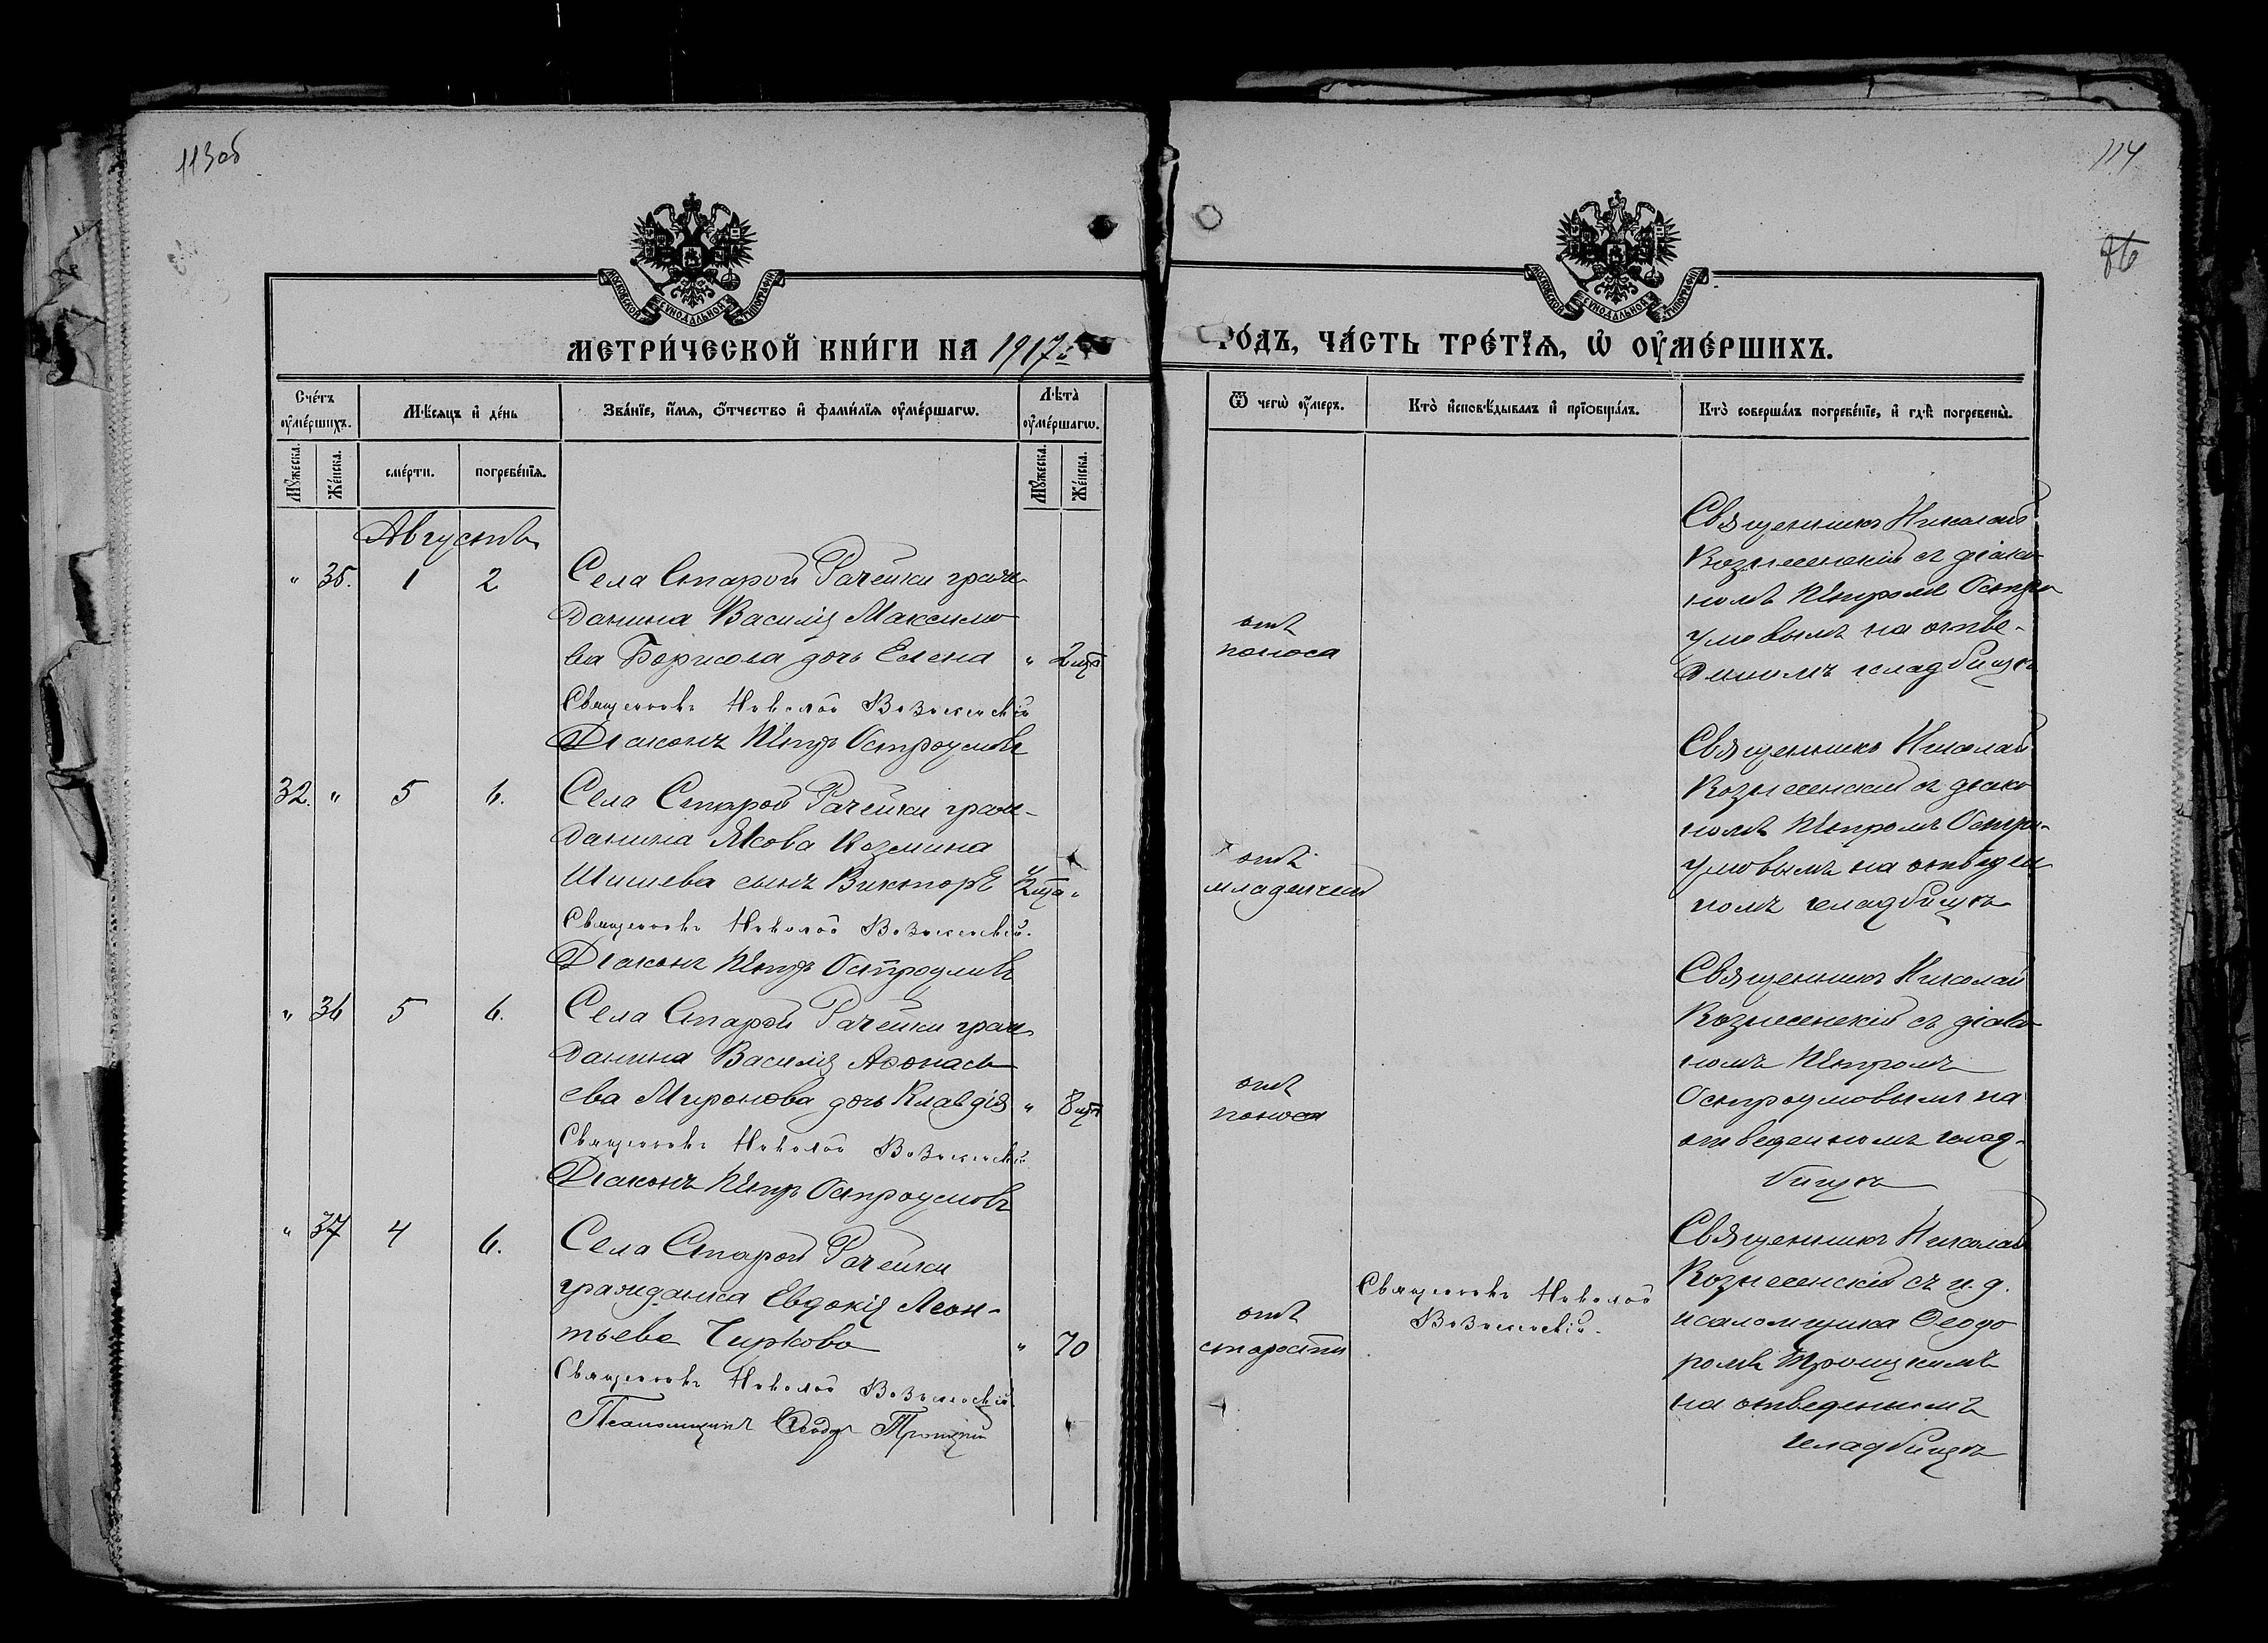 113об
114
86
МОСКОВСКОЙ СѴНОДАЛЬНОЙ ТИПОГРАФІИ
МОСКОВСКОЙ СѴНОДАЛЬНОЙ ТИПОГРАФІИ
МЕТРИ́ЧЕСКОЙ КНИ́ГИ НА 1917й
ГО́ДЪ, ЧА́СТЬ ТРЕ́ТЇѦ, Ѡ҆ ОУ҆МЕ́РШИХЪ.
Сче́тъ оу҆ме́ршихъ.
Мѣ́сяцъ и҆ де́нь
Зва́нїе, и҆́мѧ, ѻ҆́тчество и҆ фами́лїѧ оу҆ме́ршагѡ.
Лѣ́та оу҆ме́ршагѡ.
Мꙋ́жеска.
Же́нска.
сме́рти.
погребе́нїѧ.
Мꙋ́жеска.
Же́нска.
Ѿ чегѡ̀ оу҆́меръ.
Кто̀ и҆сповѣ́дывалъ и҆ прїѻбща́лъ.
Кто̀ соверша́лъ погребе́нїе, и҆ гдѣ̀ погребены̀.
Августъ
" 35. 1 2
Села Старой Рачейки граж-
данина Василія Максимо
ва Борисова дочь Елена " 2 мца
Священникъ Николай Вознесенскій
Діаконъ Петръ Остроумовъ
отъ
поноса
Священникъ Николай
Вознесенскій съ діако
номъ Петромъ Остро
умовымъ на отве-
деномъ кладбищѣ
32. " 5 6.
Села Старой Рачейки граж-
данина Якова Козмина
Шишева сынъ Викторъ 2 мца "
Священникъ Николай Вознесенскій.
Діаконъ Петръ Остроумовъ
отъ
младенчест
Священникъ Николай
Вознесенскій съ діако
номъ Петромъ Остро-
умовымъ на отведен
номъ кладбищѣ
" 36 5 6.
Села Старой Рачейки граж
данина Василія Афонась
ева Миронова дочь Клавдія " 8 мца
Священникъ Николай Вознесенскій
Діаконъ Петръ Остроумовъ
отъ
поноса
Священникъ Николай
Вознесенскій съ діако
номъ Петромъ
Остроумовымъ на
отведенномъ клад-
бищѣ
" 37 4 6.
Села Старой Рачейки
гражданка Евдокія Леон-
тьева Чиркова " 70
Священникъ Николай Вознесенскій
Псаломщикъ Ѳеодоръ Троицкій
отъ
старости
Священникъ Николай
Вознесенскій.
Священникъ Николай
Вознесенскій съ и. д.
псаломщика Ѳеодо
ромъ Троицкимъ
на отведенномъ
кладбищѣ